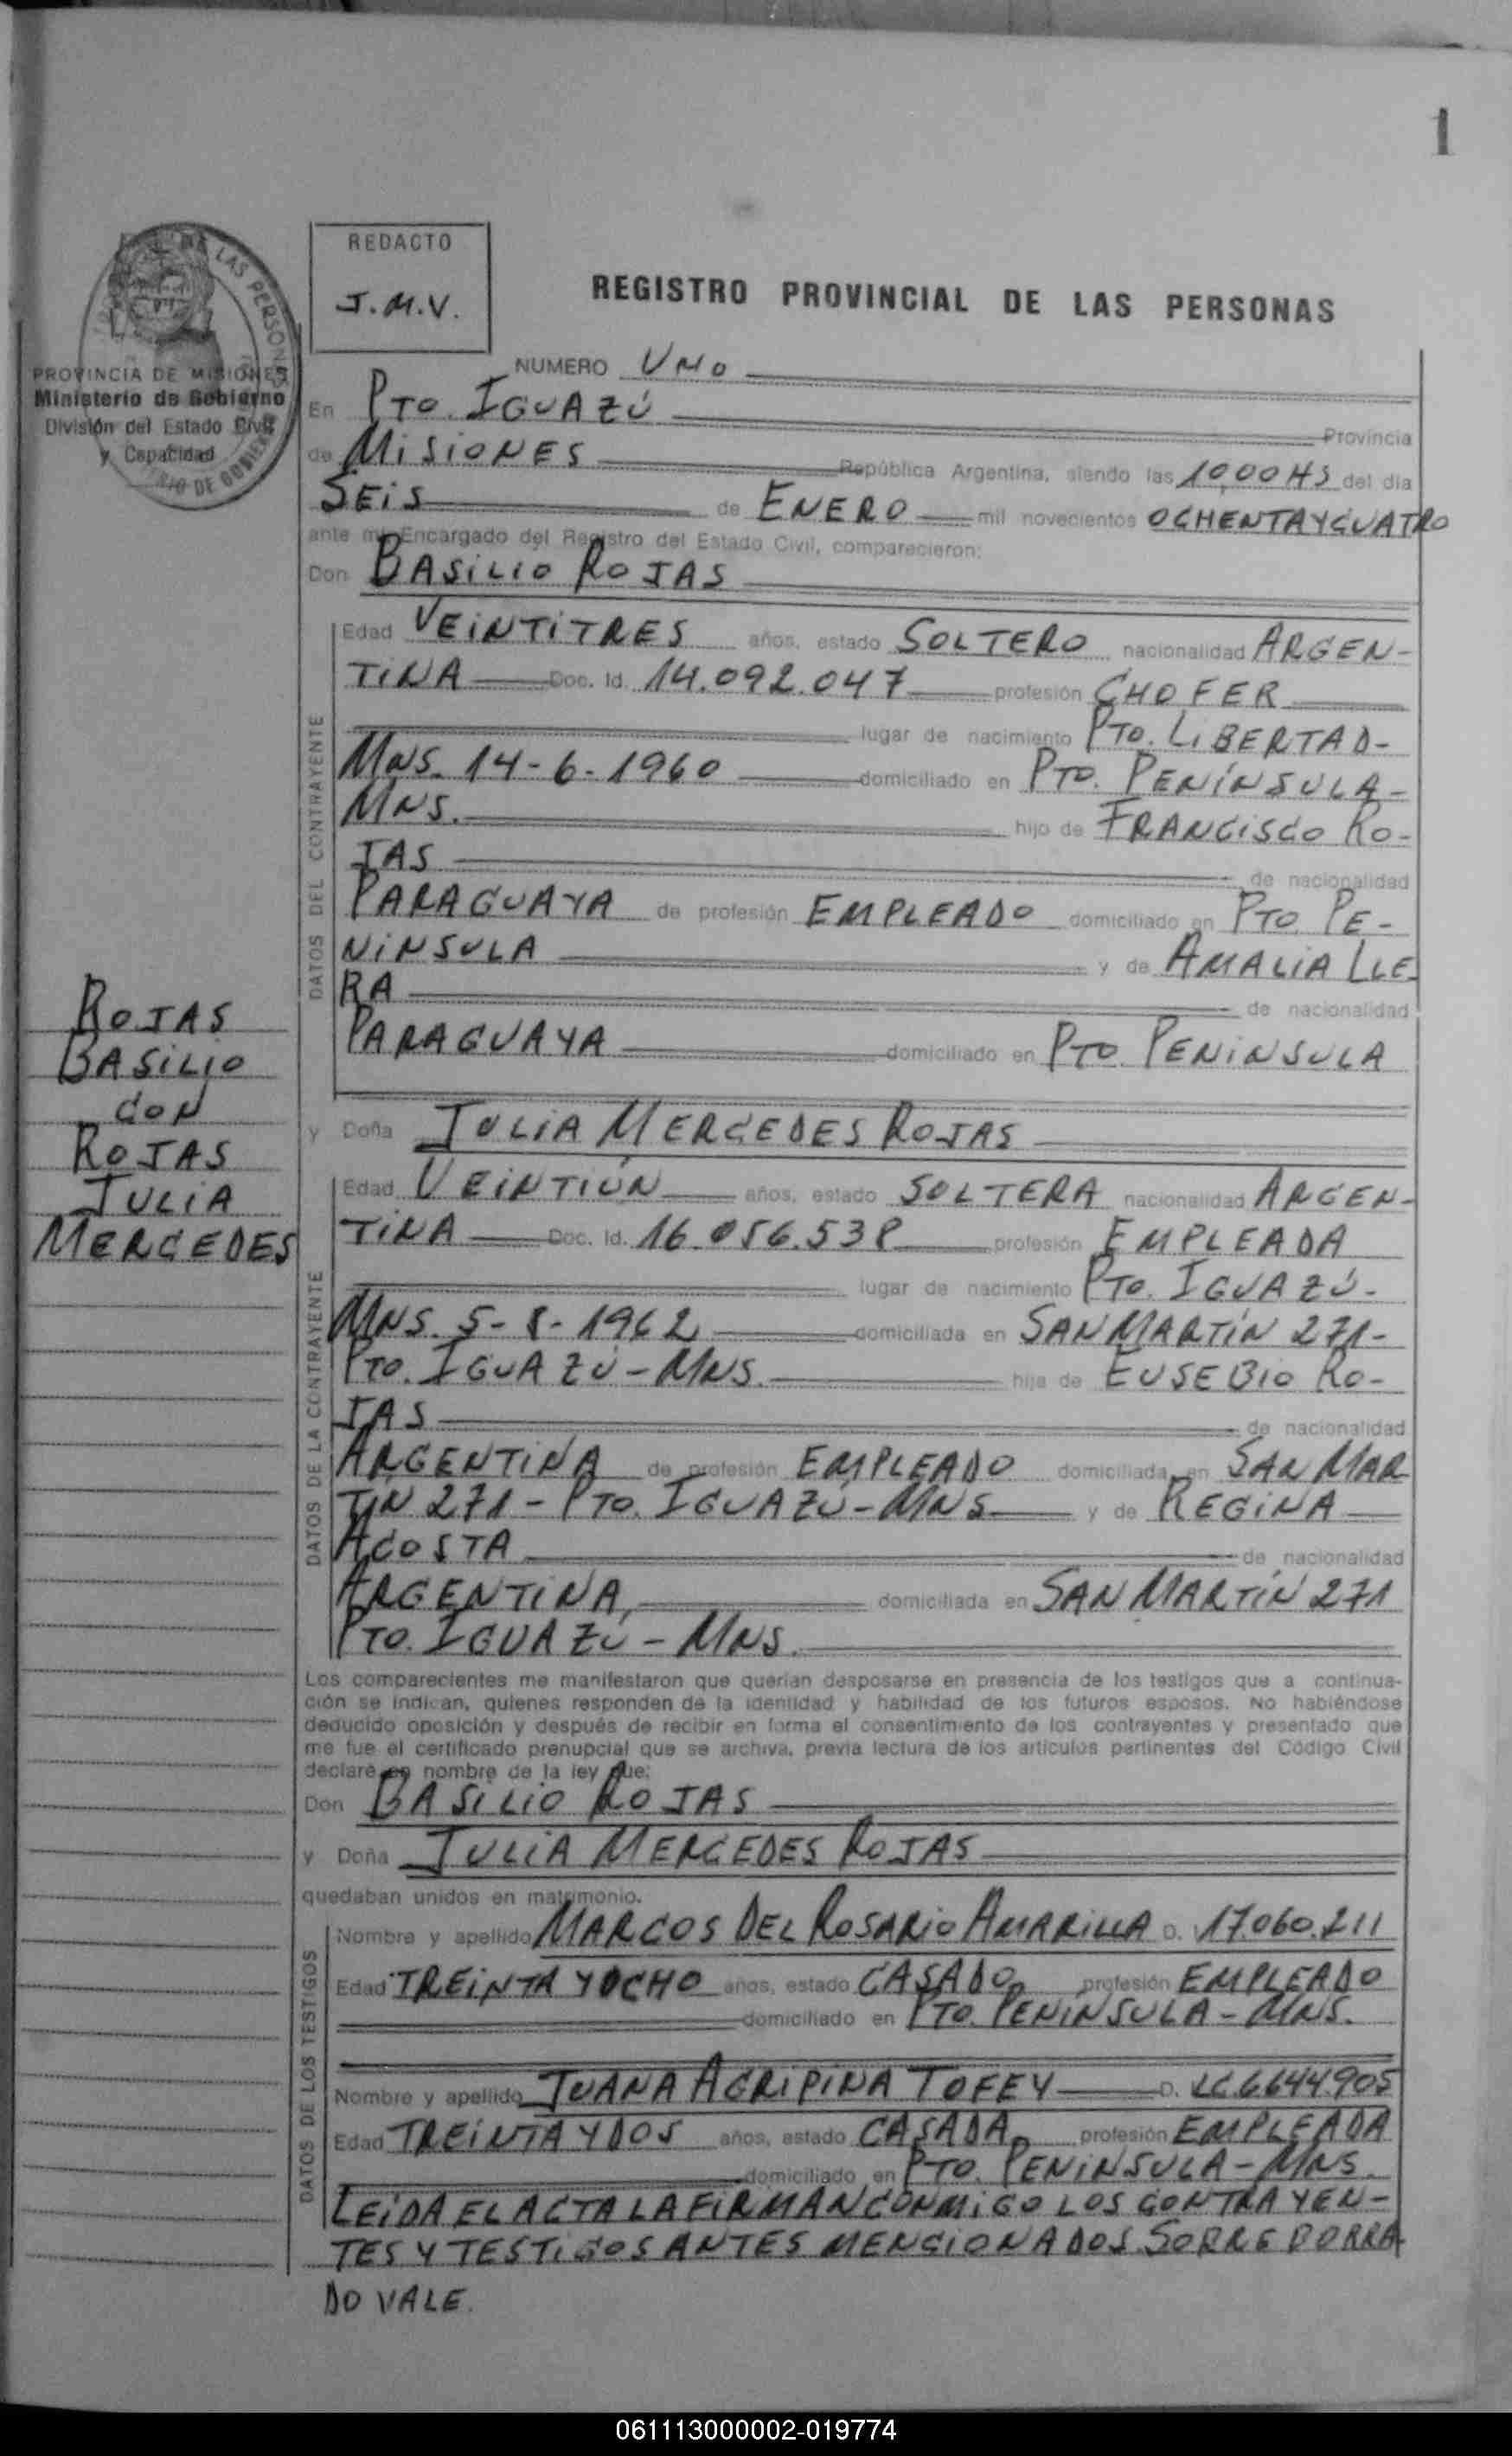 1
REDACTO
J.M.V.
REGISTRO PROVINCIAL DE LAS PERSONAS
PROVINCIA DE MISIONES
Ministerio de Gobierno
División del Estado Civil
y Capacidad
NUMERO UNO
En PTO. IGUAZÚ Provincia
de MISIONES República Argentina, siendo las 10,00 HS del dia
SEIS de ENERO mil novecientos OCHENTA Y CUATRO
ante mi, Encargado del Registro del Estado Civil, comparecieron:
Don BASILIO ROJAS
DATOS DEL CONTRAYENTE
Edad VEINTITRES años, estado SOLTERO nacionalidad ARGEN-
TINA Doc. Id. 14.092.047 profesión CHOFER
lugar de nacimiento PTO. LIBERTAD-
MNS. 14-6-1960 domiciliado en PTO. PENÍNSULA-
MNS. hijo de FRANCISCO RO-
JAS de nacionalidad
PARAGUAYA de profesión EMPLEADO domiciliado en PTO. PE-
NINSULA y de AMALIA LLE
RA de nacionalidad
PARAGUAYA domiciliado en PTO. PENINSULA
ROJAS
BASILIO
CON
ROJAS
JULIA
MERCEDES
y Doña JULIA MERCEDES ROJAS
DATOS DE LA CONTRAYENTE
Edad VEINTIÚN años, estado SOLTERA nacionalidad ARGEN-
TINA Doc. Id. 16.056.538 profesión EMPLEADA
lugar de nacimiento PTO. IGUAZÚ-
MNS. 5-8-1962 domiciliada en SAN MARTÍN 271-
PTO. IGUAZÚ-MNS. hija de EUSEBIO RO-
JAS de nacionalidad
ARGENTINA de profesión EMPLEADO domiciliada en SAN MAR
TIN 271-PTO. IGUAZÚ-MNS y de REGINA
ACOSTA de nacionalidad
ARGENTINA, domiciliada en SAN MARTÍN 271
PTO. IGUAZÚ-MNS.
Los comparecientes me manifestaron que querian desposarse en presencia de los testigos que a continua-
ción se indican, quienes responden de la identidad y habilidad de los futuros esposos. No habiéndose
deducido oposición y después de recibir en forma el consentimiento de los contrayentes y presentado que
me fue el certificado prenupcial que se archiva, previa lectura de los artículos pertinentes del Código Civil
declaré en nombre de la ley que:
Don BASILIO ROJAS
y Doña JULIA MERCEDES ROJAS
quedaban unidos en matrimonio.
DATOS DE LOS TESTIGOS
Nombre y apellido MARCOS DEL ROSARIO AMARILLA D. 17.060.211
Edad TREINTA Y OCHO años, estado CASADO profesión EMPLEADO
domiciliado en PTO. PENINSULA-MNS.
Nombre y apellido JUANA AGRIPINA TOFEY D. LC.6.644.905
Edad TREINTA Y DOS años, estado CASADA profesión EMPLEADA
domiciliado en PTO. PENINSULA-MNS.
LEÍDA EL ACTA LA FIRMAN CONMIGO LOS CONTRAYEN-
TES Y TESTIGOS ANTES MENCIONADOS. SOBRE BORRA
DO VALE.
061113000002-019774